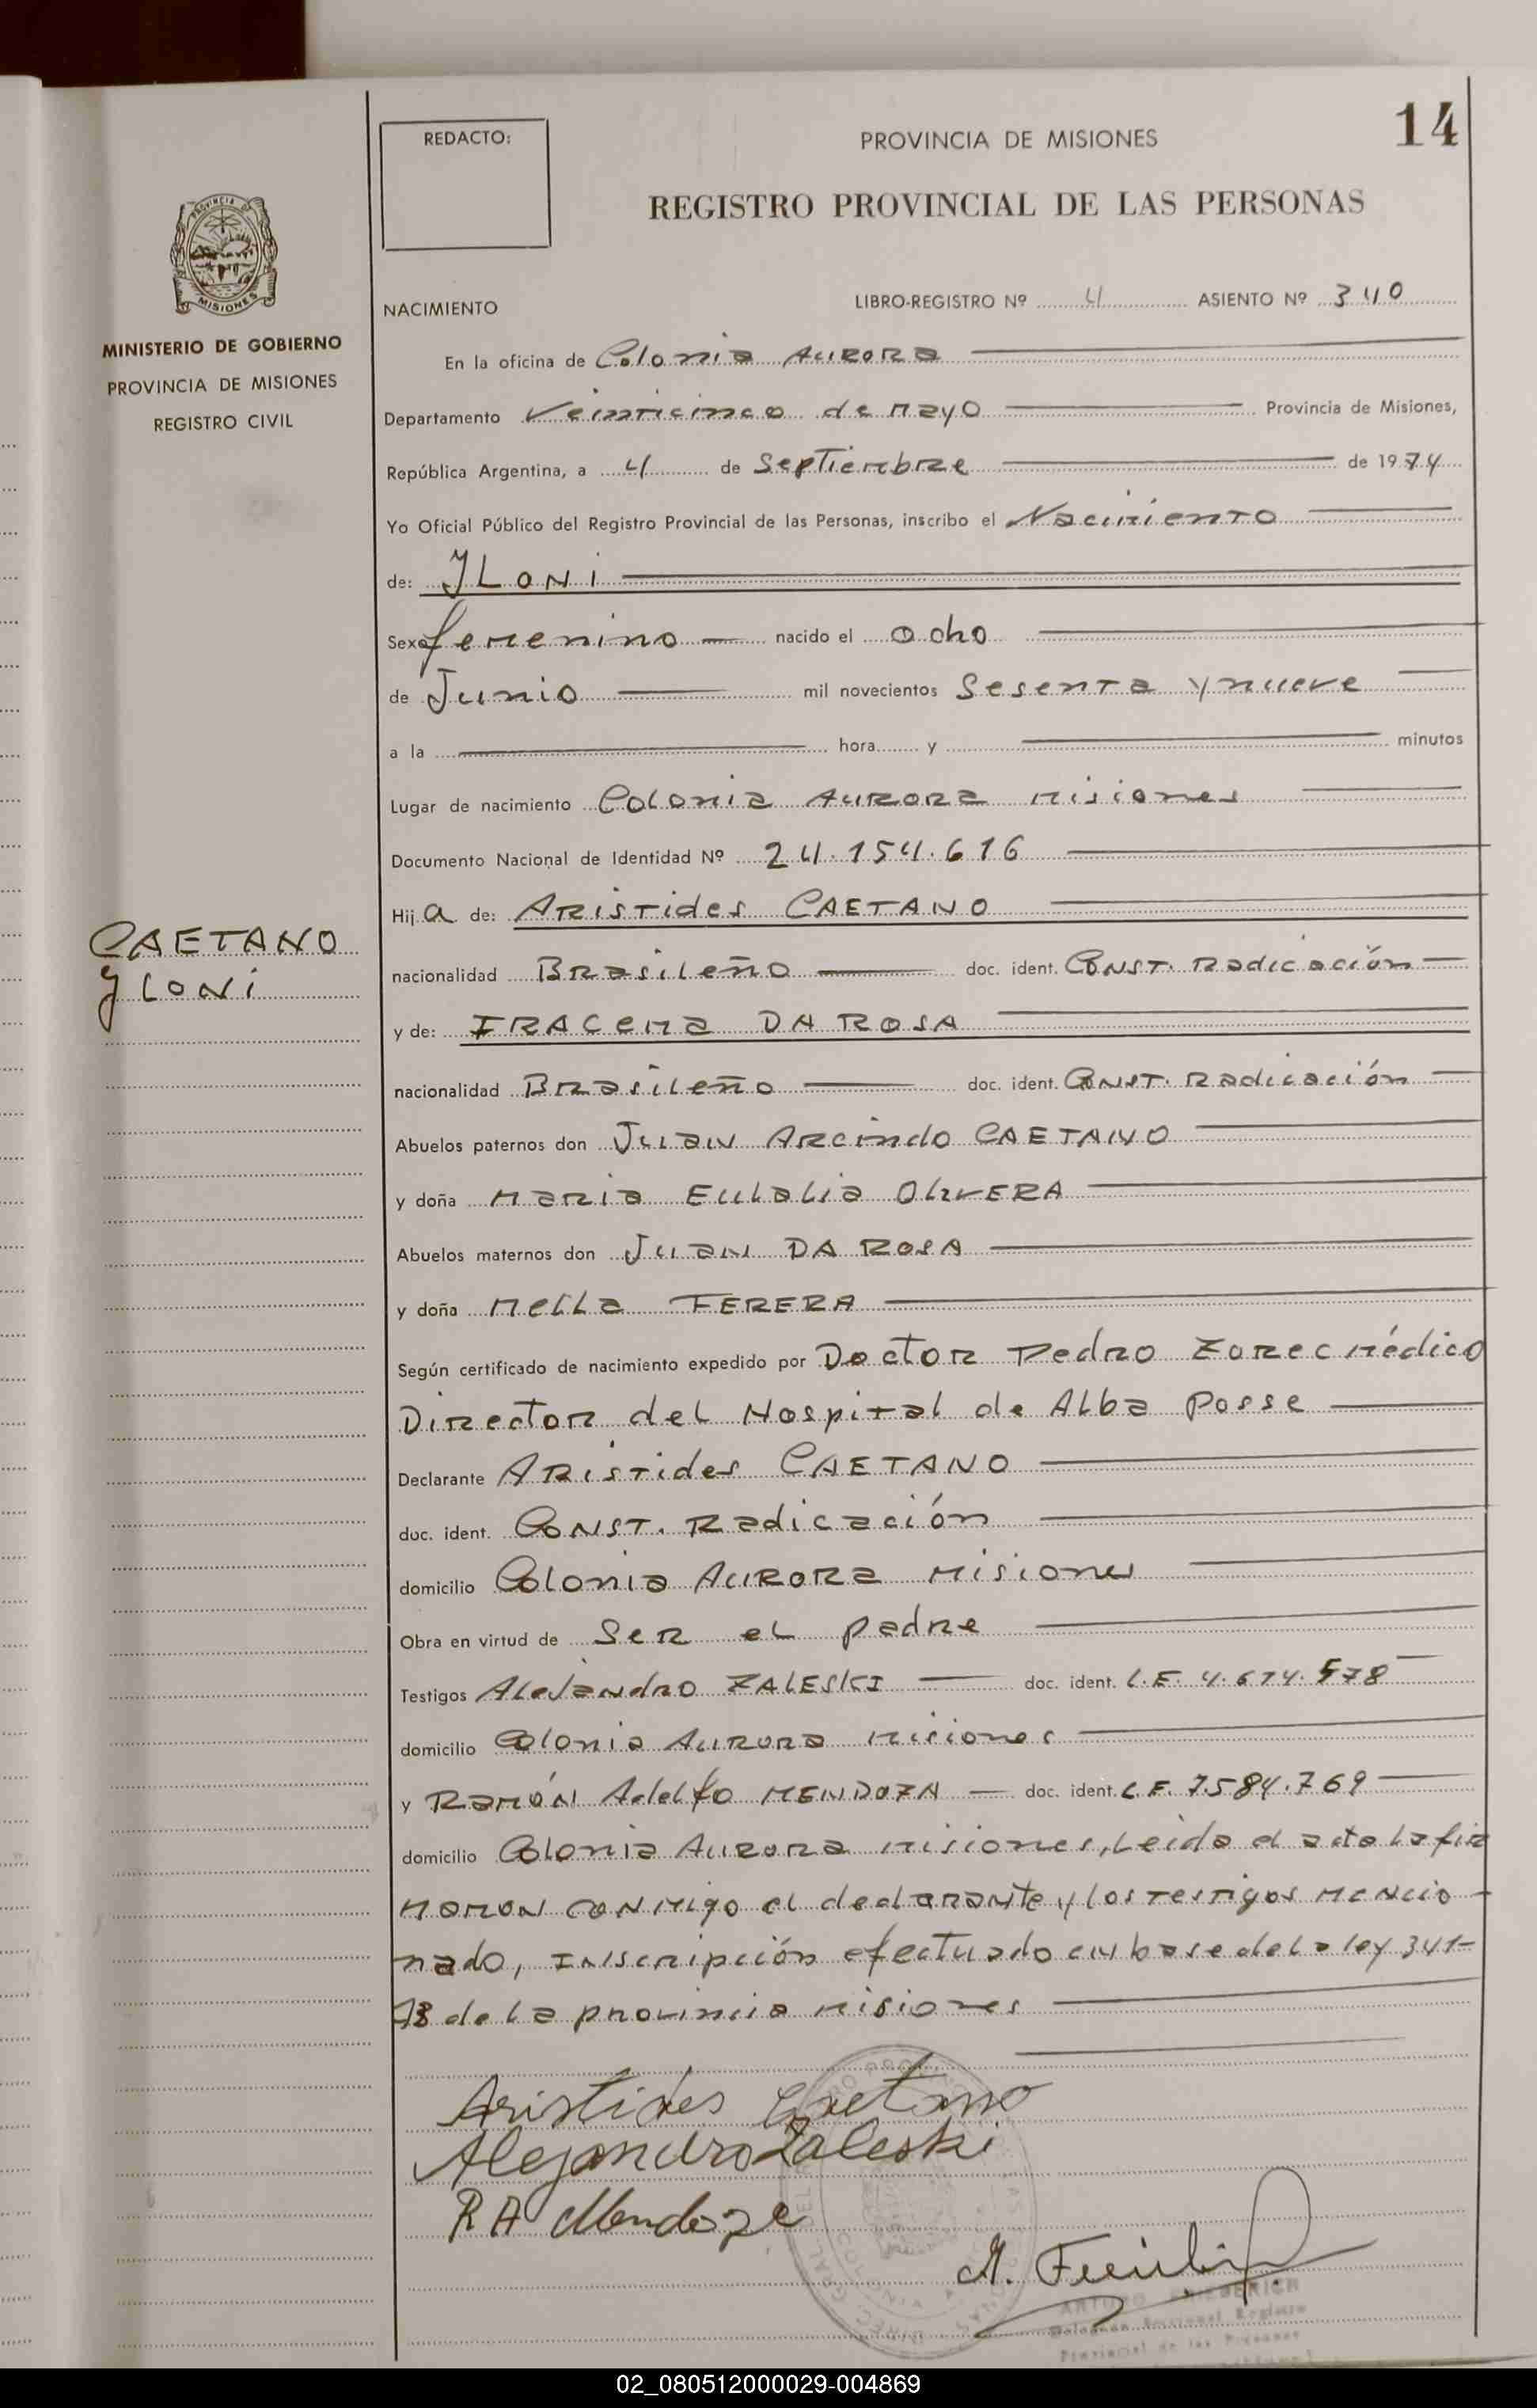 14
REDACTO:
PROVINCIA DE MISIONES
REGISTRO PROVINCIAL DE LAS PERSONAS
PROVINCIA DE
MISIONES
MINISTERIO DE GOBIERNO
PROVINCIA DE MISIONES
REGISTRO CIVIL
NACIMIENTO
LIBRO-REGISTRO Nº 4 ASIENTO Nº 340
En la oficina de Colonia AURORA
Departamento Veinticinco de Mayo Provincia de Misiones,
República Argentina, a 4 de Septiembre de 1974
Yo Oficial Público del Registro Provincial de las Personas, inscribo el Nacimiento
de: YLONI
Sexo femenino nacido el ocho
de Junio mil novecientos Sesenta y nueve
a la hora y minutos
Lugar de nacimiento Colonia AURORA Misiones
Documento Nacional de Identidad Nº 24.154.616
Hija de: ARISTides CAETANO
CAETANO
YLONI
nacionalidad BRasileño doc. ident. CONST. Radicación
y de: IRACEMa DA ROSA
nacionalidad BRasileño doc. ident. CONST. Radicación
Abuelos paternos don JUAN ARcindo CAETANO
y doña Maria Eulalia OlivERA
Abuelos maternos don JUAN DA ROSA
y doña Mella FERERA
Según certificado de nacimiento expedido por Doctor Pedro Zarec médico
Director del Hospital de Alba Posse
Declarante ARISTides CAETANO
doc. ident. CONST. Radicación
domicilio Colonia AURORa Misiones
Obra en virtud de SER el padre
Testigos Alejandro ZALESKI doc. ident. L.E. 4.674.578
domicilio Colonia AURORa Misiones
y Ramón Adelfo MENDOZA doc. ident. L.E. 7.584.769
domicilio Colonia Aurora Misiones, Leida el acta la fir
maron conmigo el declarante y los testigos mencio
nado, Inscripción efectuado en base de la ley 341-
73 de la provincia Misiones
Aristides Caetano
Alejandro Zaleski
R A Mendoza
Provincial de las Personas
02_080512000029-004869